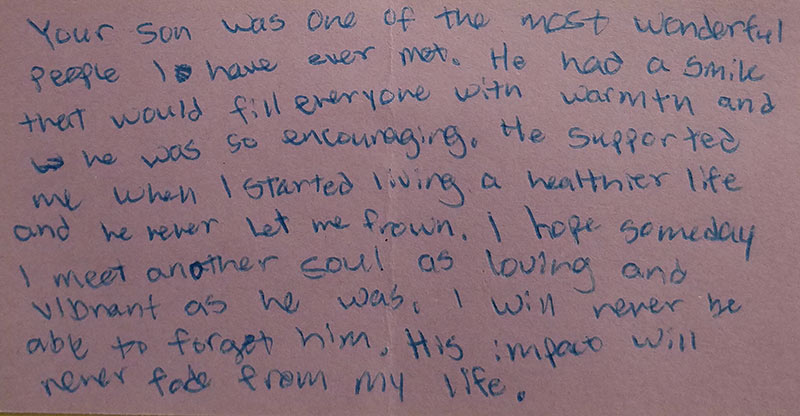 Your son was one of the most wonderful
people I have ever met. He had a smile
that would fill everyone with warmth and
he was so encouraging. He supported
me when I started living a healthier life
and he never let me frown. I hope someday
I meet another soul as loving and
vibrant as he was. I will never be
able to forget him. His impact will
never fade from my life.